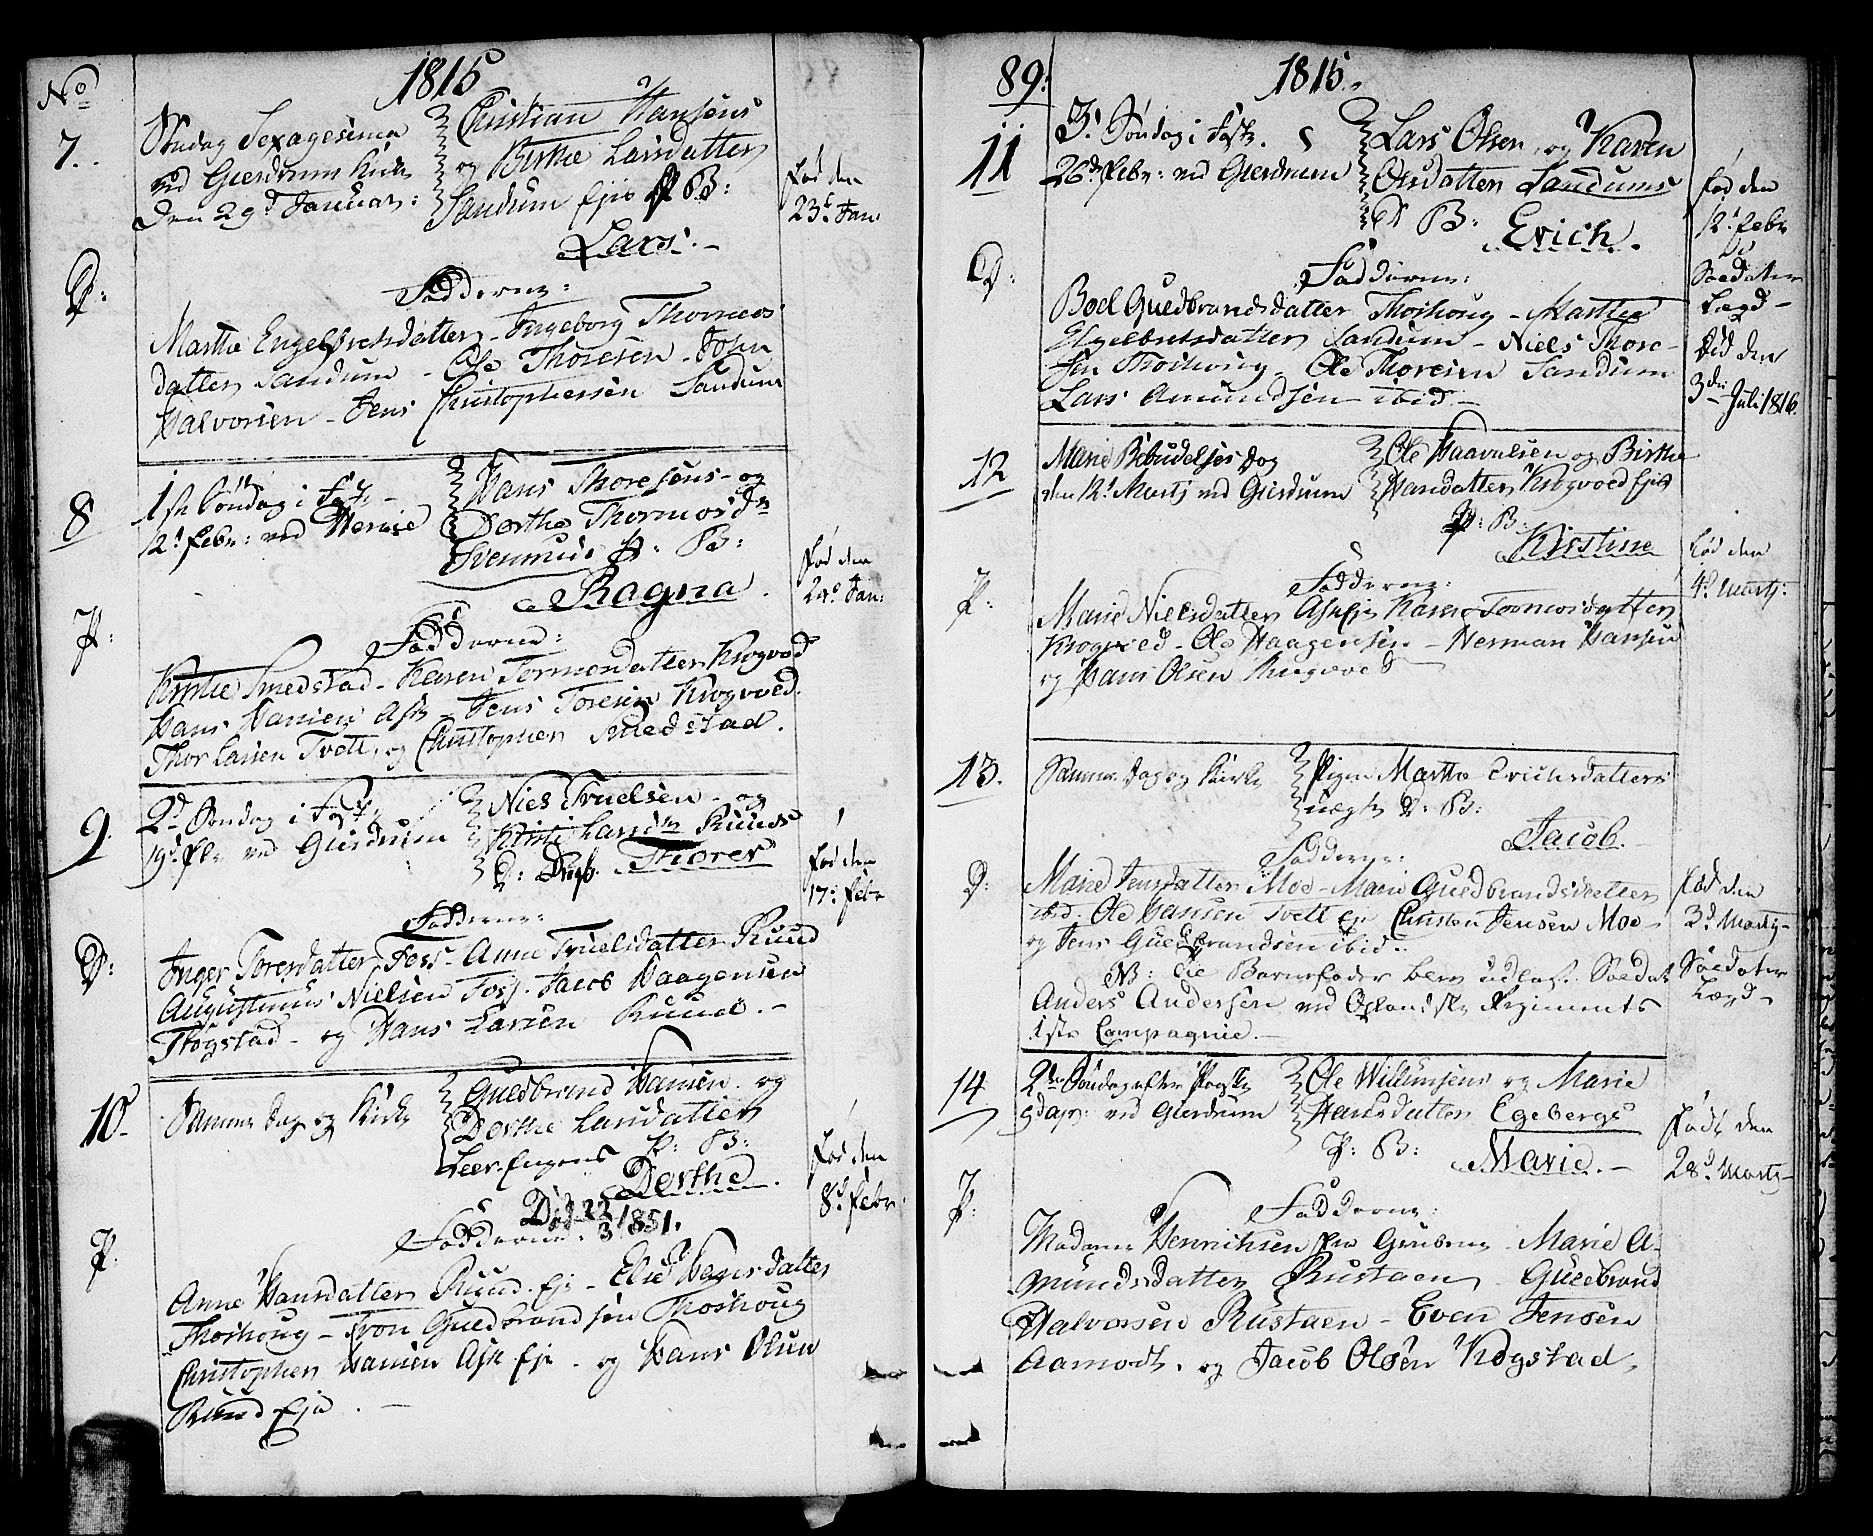 No
1815
7.
Søndag Sexagesima
ved Gierdrum Kirke
den 29d Januar:
Christian Hansens
og Birthe Larsdatter
Sandum Eje B:
Lars.
fød den
23d Jan
D:
Fadderne:
Marthe Engelbretsdatter - Ingeborg Thormods
datter Sandum - Ole Thoresen - John
Halvorsen - Jens Christophersen Sandum
8
1ste Søndag i Fast. -
12d Febr: ved Heni
Hans Thoresens - og
Dorthe Thormodsdr
P: B:
Ragna.
fød den
24d Jan:
P:
Fadderne:
Smedstad - Karen Tormodsdatter Krogvod
Hans Hansen Ask - Jens Toresen Krogvoed.
Thor Larsen Tveit, og Christopher Smedstad.
9.
2d Søndag i Fast.
19d Febr ved Gierdrum
Niels Truelsen - og
Kirsti Larsdr Ruuds
D: Drgb. Thorer
fød den
17: Febr
D:
Fadderne:
Inger Toresdatter Foss - Anne Truelsdatter Ruud
Augustinus Nielsen Foss. Jacob Haagensen
Høgstad - og Hans Larsen Ruud. -
10.
Samme Dag og Kirke
Guldbrand Hansen og
Dorthe Larsdatter
Leer-Engens P: B:
Dorthe.
fød den
8d Febr:
Død 22/3 1851.
P:
Fadderne:
Anne Hansdatter Ruud Eje - Else Hansdatter
Thoshoug - Iver Guldbrandsen Thoshoug
Christopher Hansen Ask Eje - og Hans Olsen
Ruud Eje. -
89:
1815.
11
3d Søndag i Fast.
26d Febr: ved Gierdrum
Lars Olsen og Karen
Olsdatter Sandums
D B: Erich.
fød den
12d Febr
Soldater
Lægd -
Død den
3die Juli 1816.
D:
Fadderne:
Boel Guldbrandsdatter Thoshoug - Marthe
Engelbretsdatter Sandum - Niels Thore-
sen Thoshoug - Ole Thoresen Sandum
Lars Amundsen ibid -
12
Marie Bebudelses Dag
den 12d Martj ved Gierdrum
Ole Haavelsen og Birthe
Hansdatter Krogvoed Eje
P: B:
Kirstine
fød den
4d Martj:
P:
Fadderne:
Marie Nielsdatter Ask Eje Karen Tormodsdatter
Krogvoed - Ole Haagensen - Herman Hansen
og Hans Olsen Krogvoed
13.
Samme Dag og Kirke
Pigen Marthe Erichsdatters
uægte D: B:
Jacob.
fød den
3d Martj -
Soldater
Lægd -
D:
Fadderne:
Marie Jensdatter Moe - Marie Guldbrandsdatter
ibid. Ole Hansen Tveit Eje Christen Jensen Moe -
og Jens Guldbrandsen ibid.
NB: til Barnefader blev udlagt Soldat
Anders Andersen ved Oplandske Regiments
1ste Compagnie. -
14
2den Søndag efter Paaske
9d Apr: ved Gierdrum
Ole Willumsens og Marie
Hansdatter Egebergs
P: B: Marie. -
født den
28d Martj -
P:
Fadderne:
Madame Henrichsen fra Grinberg - Marie A-
mundsdatter Rustaen - Guldbrand
Halvorsen Rustaen - Even Jensen
Aamodt. og Jacob Olsen Kogstad.